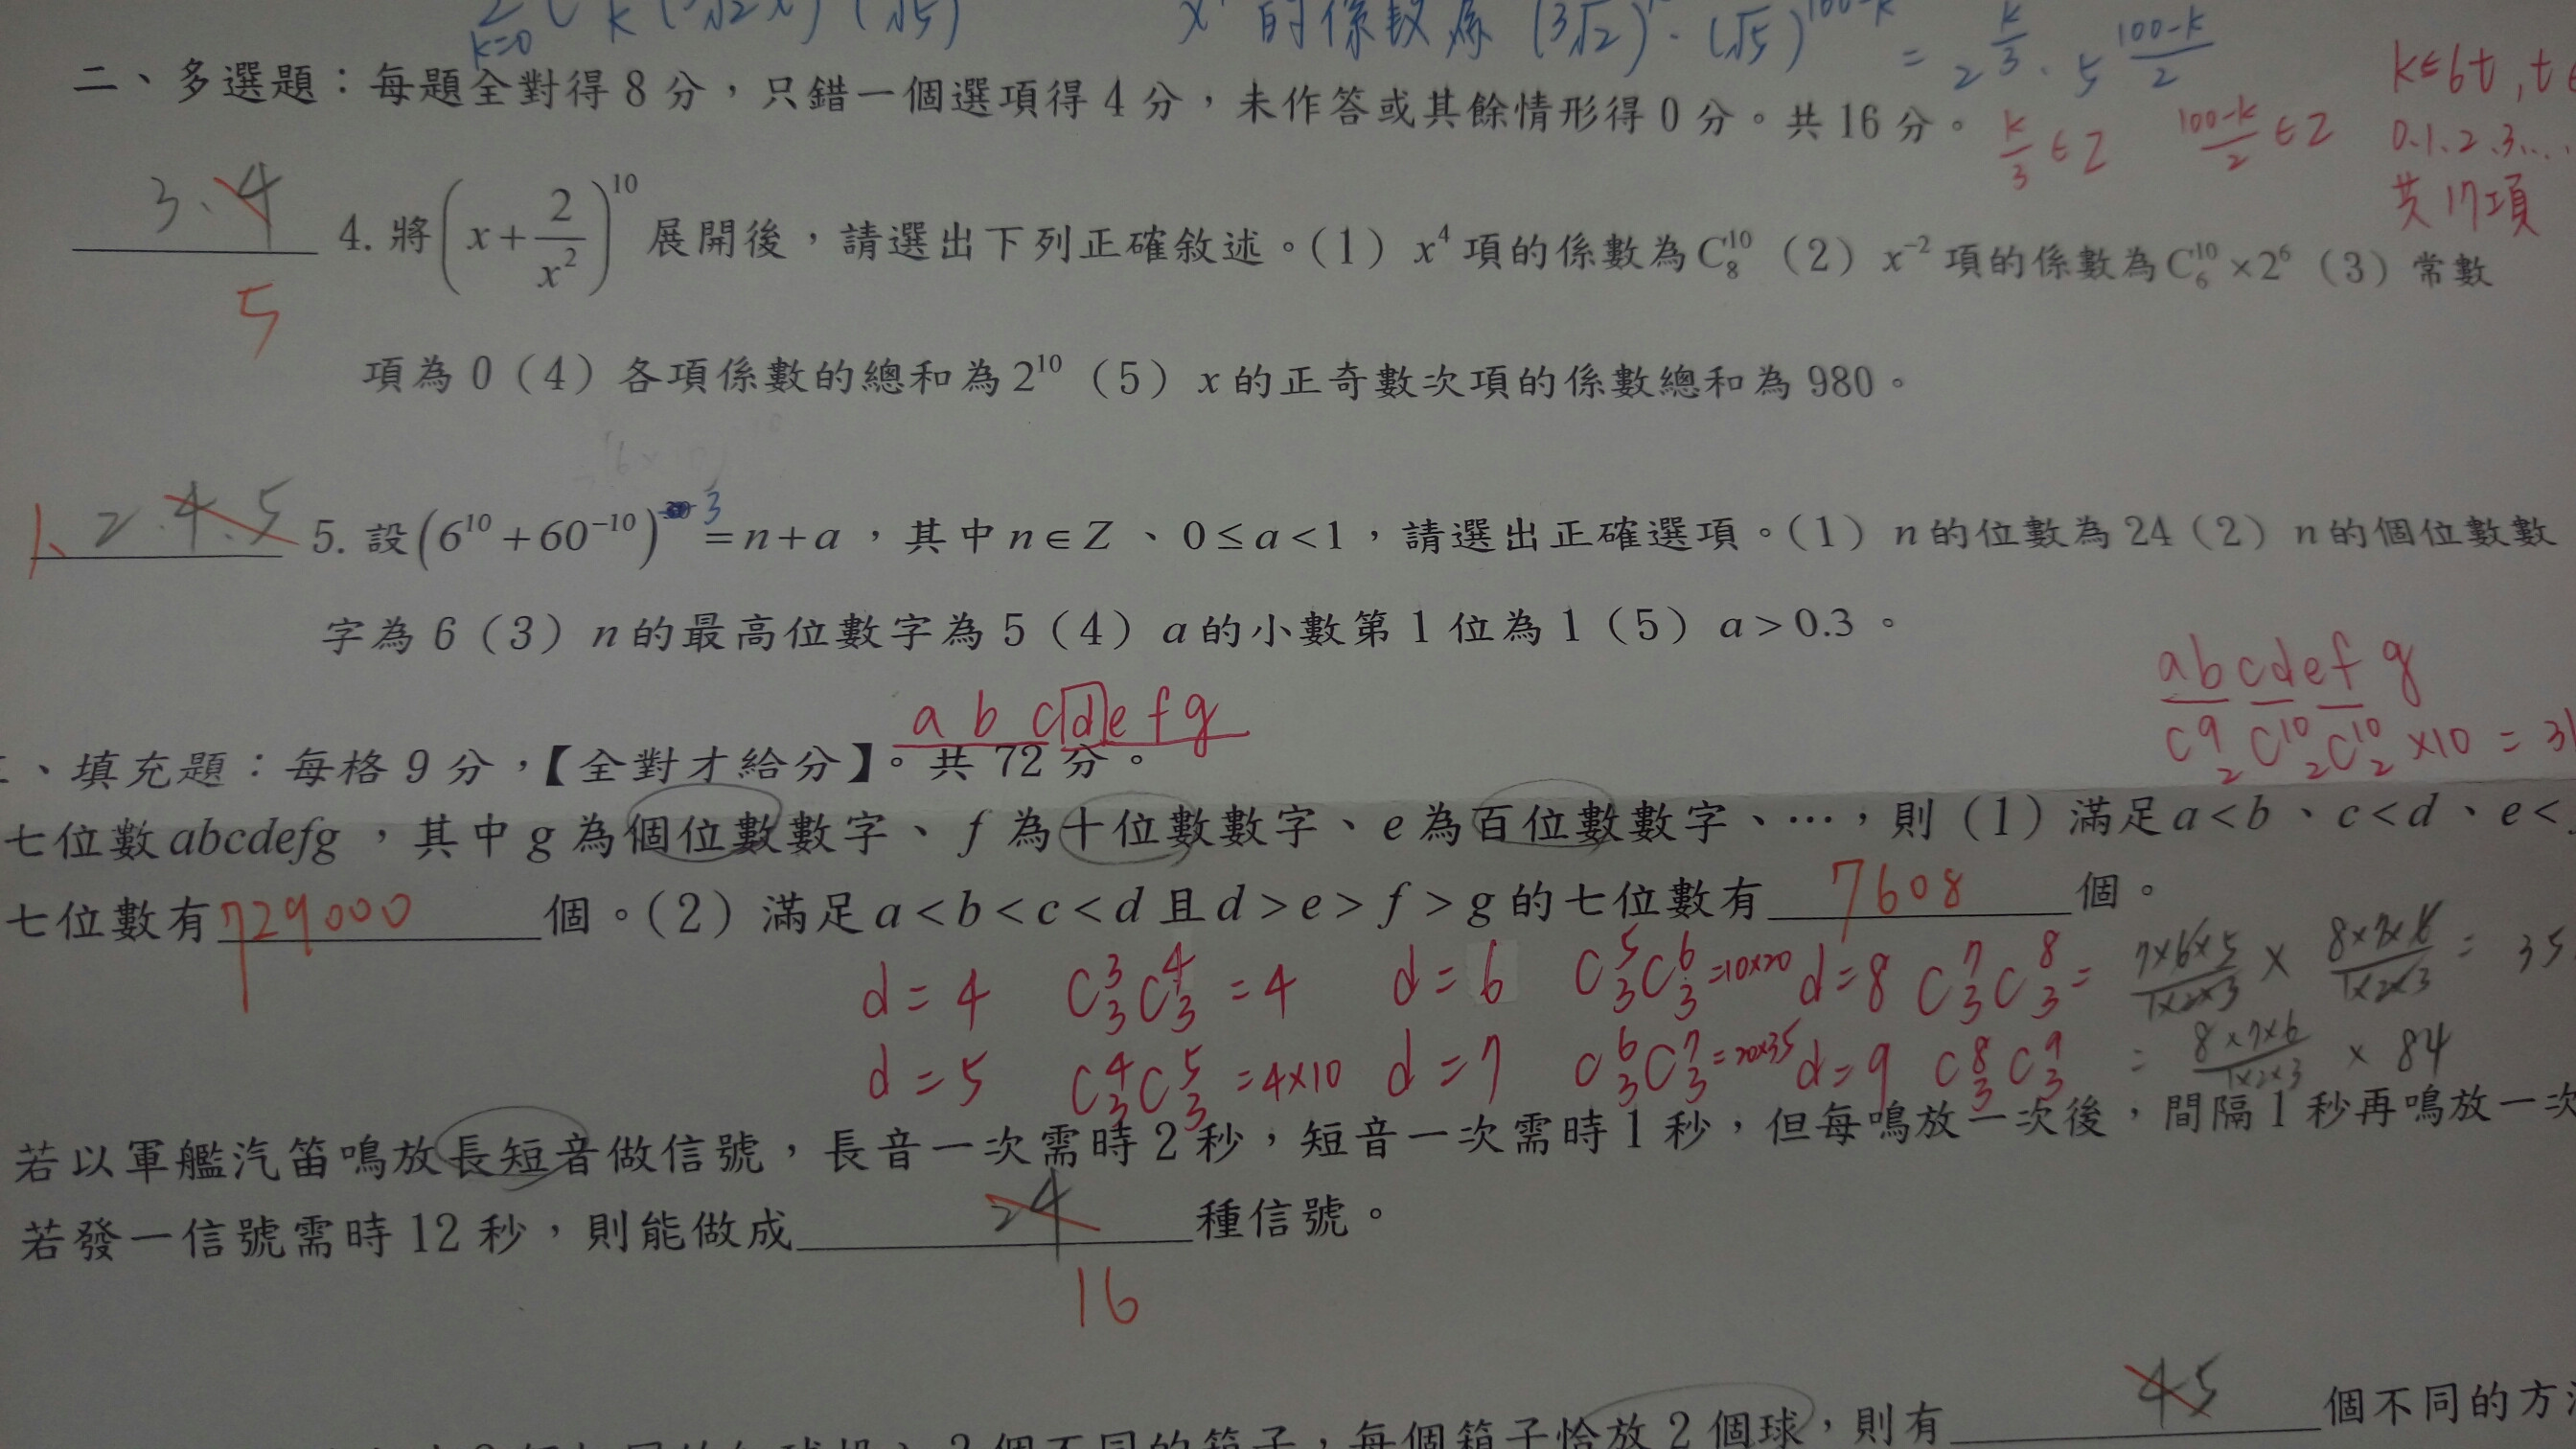 k=0
的係數為 (3√2) · (√5)^{100-k} = 2^{k/3} · 5^{(100-k)/2}
二、多選題：每題全對得 8 分，只錯一個選項得 4 分，未作答或其餘情形得 0 分。共 16 分。
k/3 ∈ Z (100-k)/2 ∈ Z
k=6t, t
0.1.2.3...
共 17 項
3、4
5
4. 將(x+2/x²)^{10}展開後，請選出下列正確敘述。(1) x⁴ 項的係數為C^{10}_8 (2) x⁻² 項的係數為C^{10}_6×2⁶ (3) 常數
項為 0 (4) 各項係數的總和為2^{10} (5) x 的正奇數次項的係數總和為 980。
1、2.4.5
5. 設(6^{10}+60^{-10})^3=n+a，其中 n∈Z、0≤a<1，請選出正確選項。(1) n 的位數為 24 (2) n 的個位數數
字為 6 (3) n 的最高位數字為 5 (4) a 的小數第 1 位為 1 (5) a>0.3。
abcdefg
C^9_2 C^{10}_2 C^{10}_2 ×10 = 31
a b c d e f g
、填充題：每格 9 分，【全對才給分】。共 72 分。
七位數abcdefg，其中 g 為個位數數字、f 為十位數數字、e 為百位數數字、…，則 (1) 滿足a<b、c<d、e<
七位數有 729000 個。(2) 滿足a<b<c<d 且d>e>f>g 的七位數有 7608 個。
d=4 C^3_3 C^4_3 =4 d=6 C^5_3 C^6_3 =10×20 d=8 C^7_3 C^8_3 = 7×6×5/1×2×3 × 8×7×6/1×2×3 = 35
d=5 C^4_3 C^5_3 =4×10 d=7 C^6_3 C^7_3 =20×35 d=9 C^8_3 C^9_3 = 8×7×6/1×2×3 × 84
若以軍艦汽笛鳴放長短音做信號，長音一次需時 2 秒，短音一次需時 1 秒，但每鳴放一次後，間隔 1 秒再鳴放一次
若發一信號需時 12 秒，則能做成 24 種信號。
16
個不同的箱子，每個箱子恰放 2 個球，則有 45 個不同的方